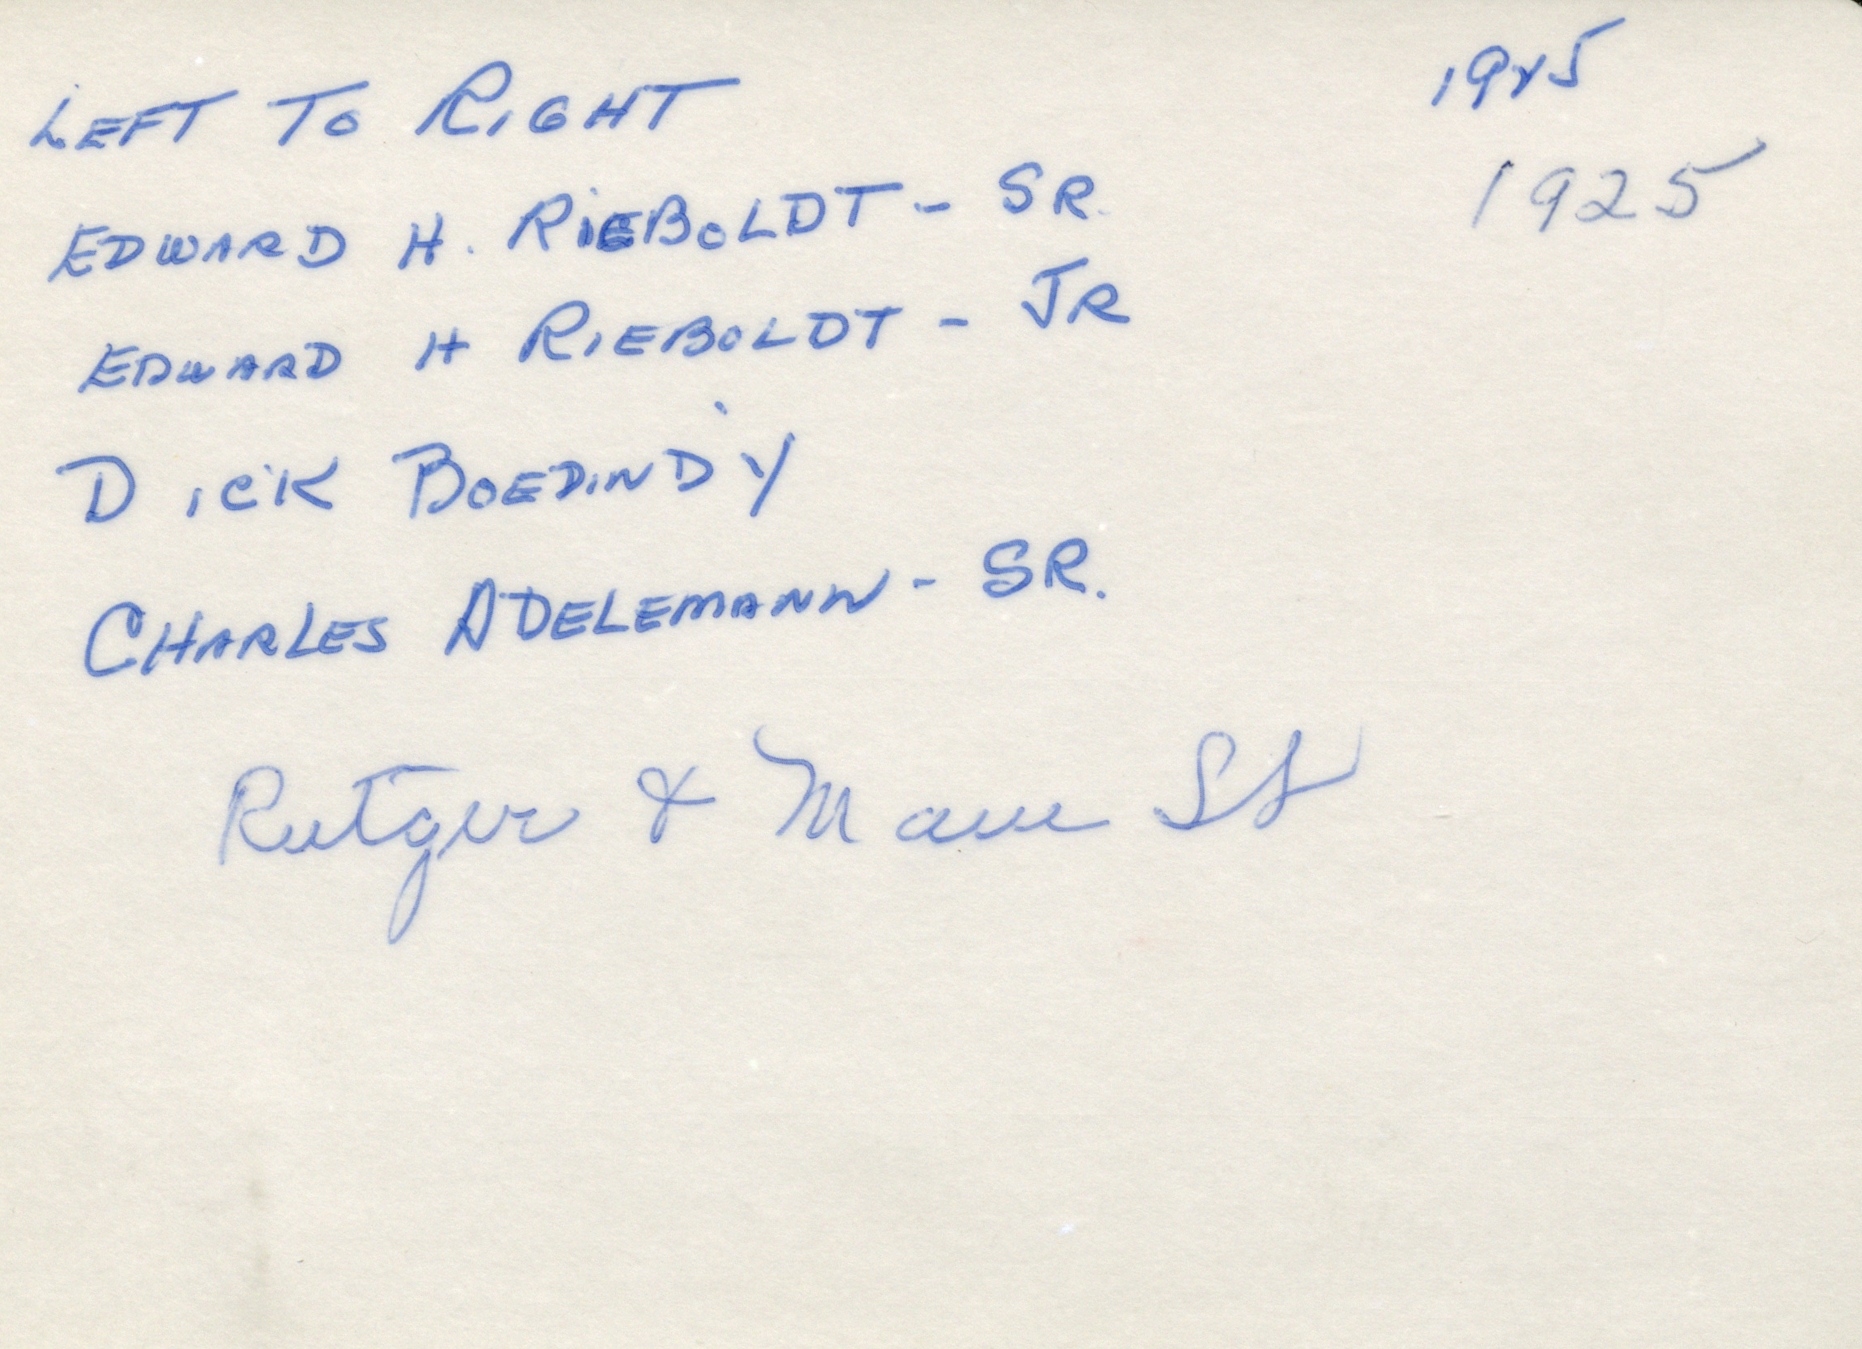 1925
LEFT TO RIGHT
1925
EDWARD H. RIEBOLDT - SR.
EDWARD H RIEBOLDT - JR
DICK BOEDINDY
CHARLES ADELEMANN - SR.
Rutger & St